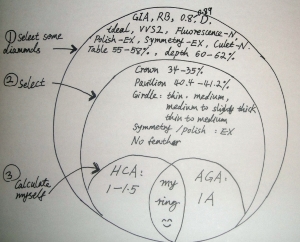 GIA, RB, 0.8~0.89, D.
ideal, VVS2, Fluorescence-N
Polish-EX, Symmetry-EX, Culet-N.
Table 55-58%, depth 60-62%
① Select some
diamonds
② Select
Crown 34-35%
Pavilion 40.4-41.2%
Girdle: thin, medium,
medium to slightly thick
thin to medium
Symmetry/polish: EX
No feather
③ Calculate
myself
HCA:
1-1.5
my
ring
AGA:
1A